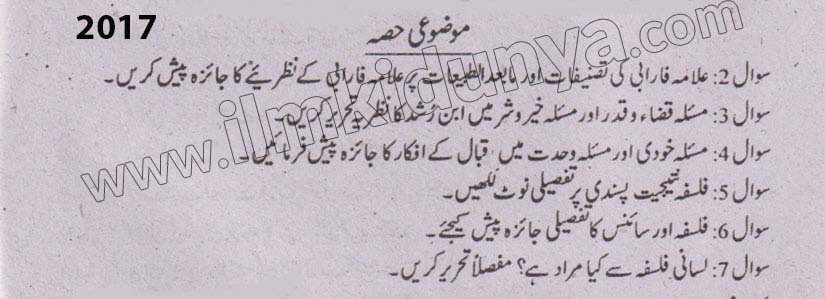 2017
موضوعی حصہ
سوال 2: علامہ فارابی کی تصنیفات اور مابعد الطبیعات پر علامہ فارابی کے نظریئے کا جائزہ پیش کریں۔
سوال 3: مسئلہ قضاء و قدر اور مسئلہ خیر و شر میں ابن رُشد کا نظریہ تحریر کریں۔
سوال 4: مسئلہ خودی اور مسئلہ وحدت میں قبال کے افکار کا جائزہ پیش فرمائیں۔
سوال 5: فلسفہ نتیجیت پسندی پر تفصیلی نوٹ لکھیں۔
سوال 6: فلسفہ اور سائنس کا تفصیلی جائزہ پیش کیجئے۔
سوال 7: لسانی فلسفہ سے کیا مراد ہے؟ مفصلاً تحریر کریں۔
www.ilmkidunya.com